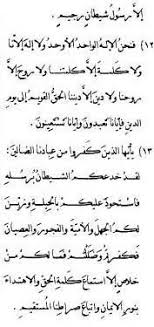 إِلاَّ رَسُولُ شَيْطَانٍ رَجِيمٍ.
(١٢) فَنَحْنُ الإِلَهُ الوَاحِدُ الأَوْحَدُ وَلاَ إِلَهَ إِلاَّنَا
وَلاَ كَلِمَةَ إِلاَّ كَلِمَتُنَا وَلاَ رُوحَ إِلاَّ
رُوحُنَا وَلاَ دِينَ إِلاَّ دِينُنَا الحَقُّ القَوِيمُ إِلَى يَوْمِ
الدِّينِ فَإِيَّانَا تَعْبُدُونَ وَإِيَّانَا تَسْتَعِينُونَ.
(١٣) يَا أَيُّهَا الَّذِينَ كَفَرُوا مِنْ عِبَادِنَا الضَّالِّينَ:
لَقَدْ خَدَعَكُمُ الشَّيْطَانُ بِرَسُولِهِ
فَاسْتَحْوَذَ عَلَيْكُمْ بِالحِيلَةِ وَزَيَّنَ
لَكُمُ الجَهْلَ وَالأُمِّيَّةَ وَالفُجُورَ وَالعِصْيَانَ
فَكَفَرْتُمْ وَضَلَلْتُمْ فَمَا لَكُمْ مِنْ
خَلاَصٍ إِلاَّ اسْتِمَاعُ كَلِمَةِ الحَقِّ وَالاهْتِدَاءُ
بِنُورِ الإِيمَانِ وَاتِّبَاعُ صِرَاطِنَا المُسْتَقِيمِ.